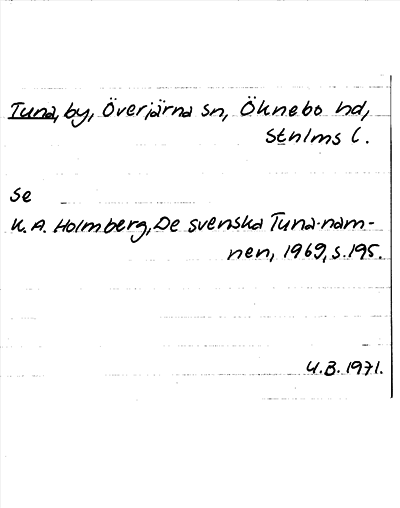 Tuna, by, Överjärna sn, Öknebo hd,
Sthlms l.
Se
K. A. Holmberg, De svenska Tuna-nam-
nen, 1969, s. 195.
U.B. 1971.